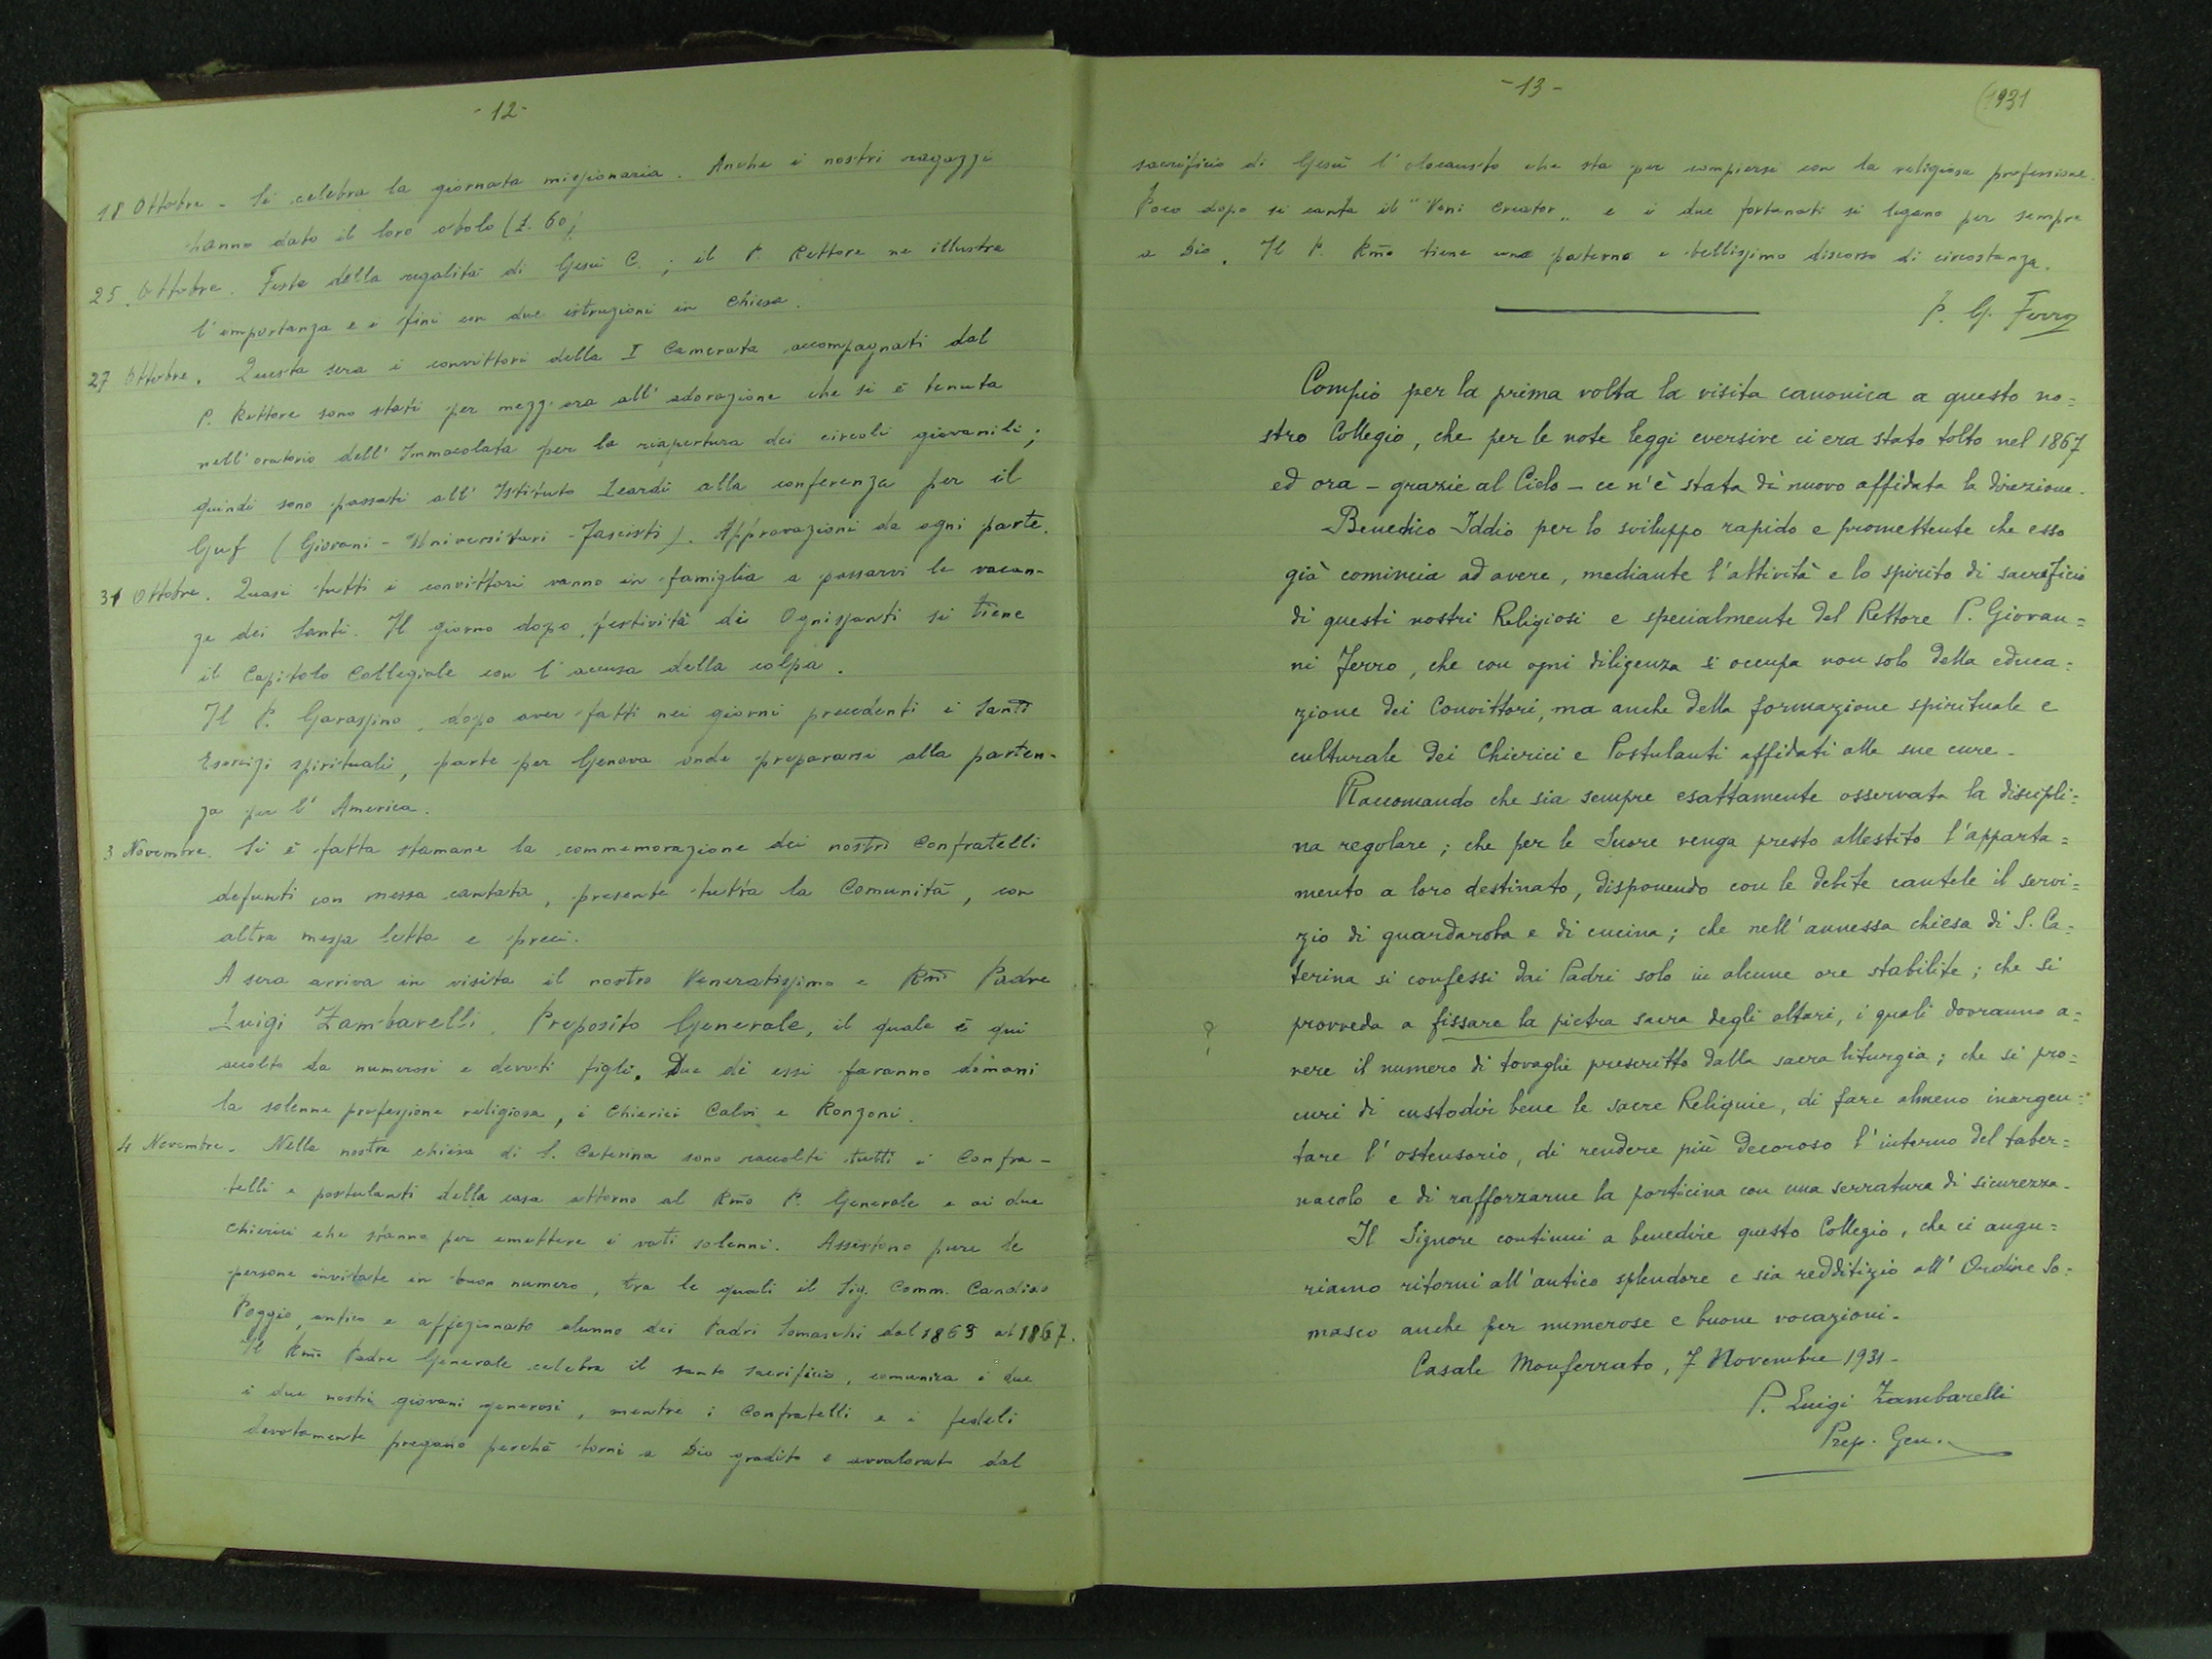 - 12 -
18 Ottobre - Si celebra la giornata missionaria. Anche i nostri ragazzi
hanno dato il loro obolo (L. 60)
25. Ottobre. Festa della regalità di Gesù C.; il P. Rettore ne illustra
l'importanza e i fini con due istruzioni in Chiesa.
27 Ottobre. Questa sera i convittori della I Camerata accompagnati dal
P. Rettore sono stati per mezz'ora all'adorazione che si è tenuta
nell'oratorio dell'Immacolata per la riapertura dei circoli giovanili;
quindi sono passati all'Istituto Leardi alla conferenza per il
Guf (Giovani - Universitari - Fascisti). Approvazioni da ogni parte.
31 Ottobre. Quasi tutti i convittori vanno in famiglia a passarvi le vacan-
ze dei Santi. Il giorno dopo, festività di Ognissanti si tiene
il Capitolo Collegiale con l'accusa della colpa.
Il P. Garassino, dopo aver fatti nei giorni precedenti i Santi
Esercizi spirituali, parte per Genova onde prepararsi alla parten-
za per l'America.
3 Novembre. Si è fatta stamane la commemorazione dei nostri Confratelli
defunti con messa cantata, presente tutta la Comunità, con
altra messa letta e preci.
A sera arriva in visita il nostro Veneratissimo e Rmo Padre
Luigi Zambarelli, Preposito Generale, il quale è qui
accolto da numerosi e devoti figli. Due di essi faranno domani
la solenne professione religiosa, i Chierici Calvi e Ronzoni.
4 Novembre. Nella nostra chiesa di S. Caterina sono raccolti tutti i Confra-
telli e postulanti della casa attorno al Rmo P. Generale e ai due
Chierici che stanno per emettere i voti solenni. Assistono pure le
persone invitate in buon numero, tra le quali il Sig. Comm. Candido
Poggio, antico e affezionato alunno dei Padri Somaschi dal 1863 al 1867.
Il Rmo Padre Generale celebra il santo Sacrificio, comunica i due
i due nostri giovani generosi, mentre i Confratelli e i fedeli
devotamente pregano perchè torni a Dio gradito e avvalorato dal
- 13 -
(1931
sacrificio di Gesù l'olocausto che sta per compiersi con la religiosa professione.
Poco dopo si canta il "Veni Creator" e i due fortunati si legano per sempre
a Dio. Il P. Rmo tiene uno paterno e bellissimo discorso di circostanza.
P. G. Ferro
Compio per la prima volta la visita canonica a questo no=
stro Collegio, che per le note leggi eversive ci era stato tolto nel 1867
ed ora - grazie al Cielo - ce n'è stata di nuovo affidata la direzione.
Benedico Iddio per lo sviluppo rapido e promettente che esso
già comincia ad avere, mediante l'attività e lo spirito di sacrificio
di questi nostri Religiosi e specialmente del Rettore P. Giovan=
ni Ferro, che con ogni diligenza si occupa non solo della educa=
zione dei Convittori, ma anche della formazione spirituale e
culturale dei Chierici e Postulanti affidati alle sue cure.
Raccomando che sia sempre esattamente osservata la discipli=
na regolare; che per le Suore venga presto allestito l'apparta=
mento a loro destinato, disponendo con le debite cautele il servi=
zio di guardaroba e di cucina; che nell'annessa chiesa di S. Ca=
terina si confessi dai Padri solo in alcune ore stabilite; che si
? provveda a fissare la pietra sacra degli altari, i quali dovranno a=
vere il numero di tovaglie prescritto dalla sacra liturgia; che si pro=
curi di custodir bene le sacre Reliquie, di fare almeno inargen=
tare l'ostensorio, di rendere più decoroso l'interno del taber=
nacolo e di rafforzarne la porticina con una serratura di sicurezza.
Il Signore continui a benedire questo Collegio, che ci augu=
riamo ritorni all'antico splendore e sia redditizio all'Ordine So=
masco anche per numerose e buone vocazioni.
Casale Monferrato, 7 Novembre 1931.
P. Luigi Zambarelli
Prep. Gen.